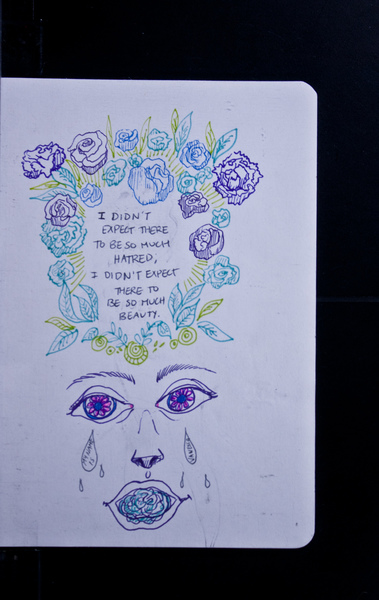 I DIDN'T
EXPECT THERE
TO BE SO MUCH
HATRED,
I DIDN'T EXPECT
THERE TO
BE SO MUCH
BEAUTY.